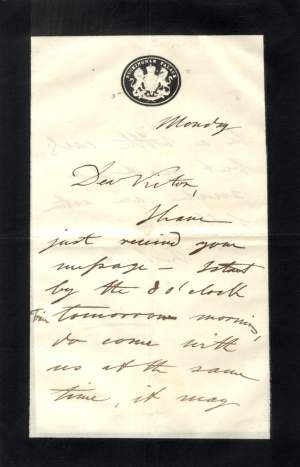 BUCKINGHAM PALACE
Monday
Dear Victor,
I have
just received your
message – I start
by the 8 o'clock
Train tomorrow morning,
do come with
us at the same
time, it may